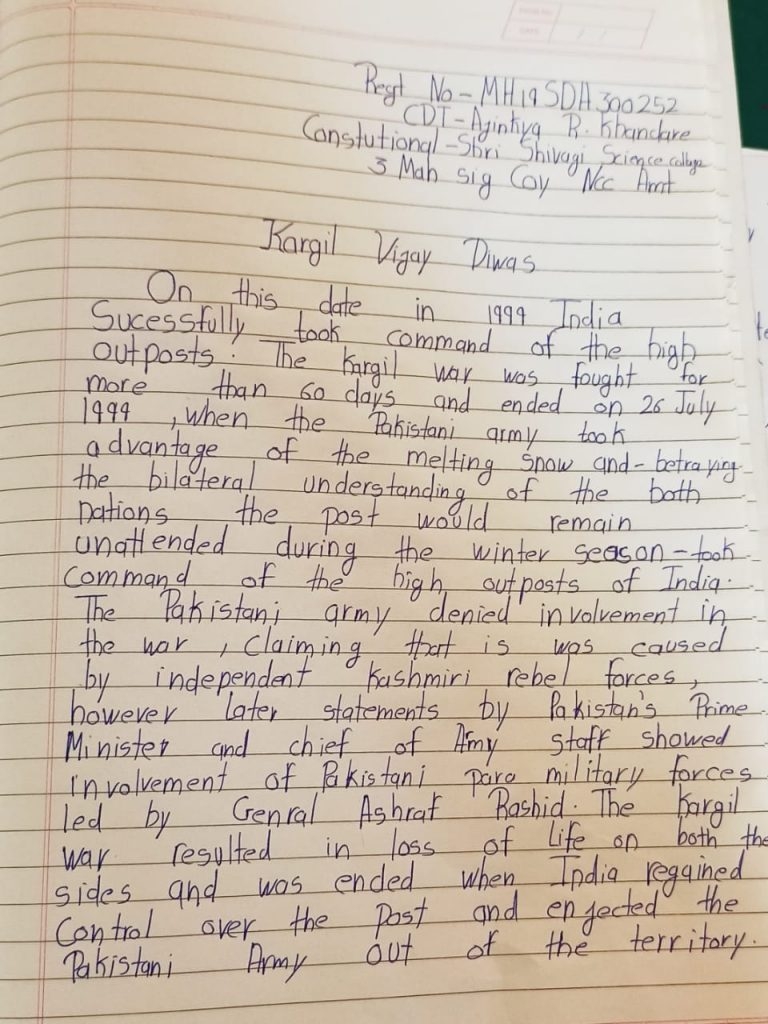 Regt No - MH19SDA300252
CDT - Ajinkya R. Khandare
Constutional - Shri Shivagi Science college
3 Mah sig Coy Ncc Amt
Kargil Vigay Diwas
On this date in 1999 India
Sucessfully took command of the high
outposts. The Kargil war was fought for
more than 60 days and ended on 26 July
1999 , when the Pakistani army took
advantage of the melting snow and - betraying
the bilateral understanding of the both
nations the post would remain
unattended during the winter season - took
command of the high outposts of India.
The Pakistani army denied involvement in
the war , claiming that is was caused
by independent Kashmiri rebel forces,
however later statements by Pakistan's Prime
Minister and chief of Army staff showed
involvement of Pakistani para military forces
led by Genral Ashraf Rashid. The Kargil
war resulted in loss of Life on both the
sides and was ended when India regained
Control over the post and enjected the
Pakistani Army out of the territory.